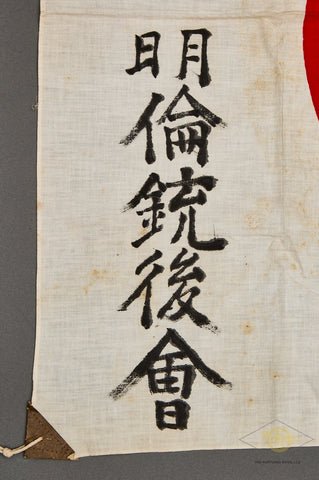 明倫銃後會